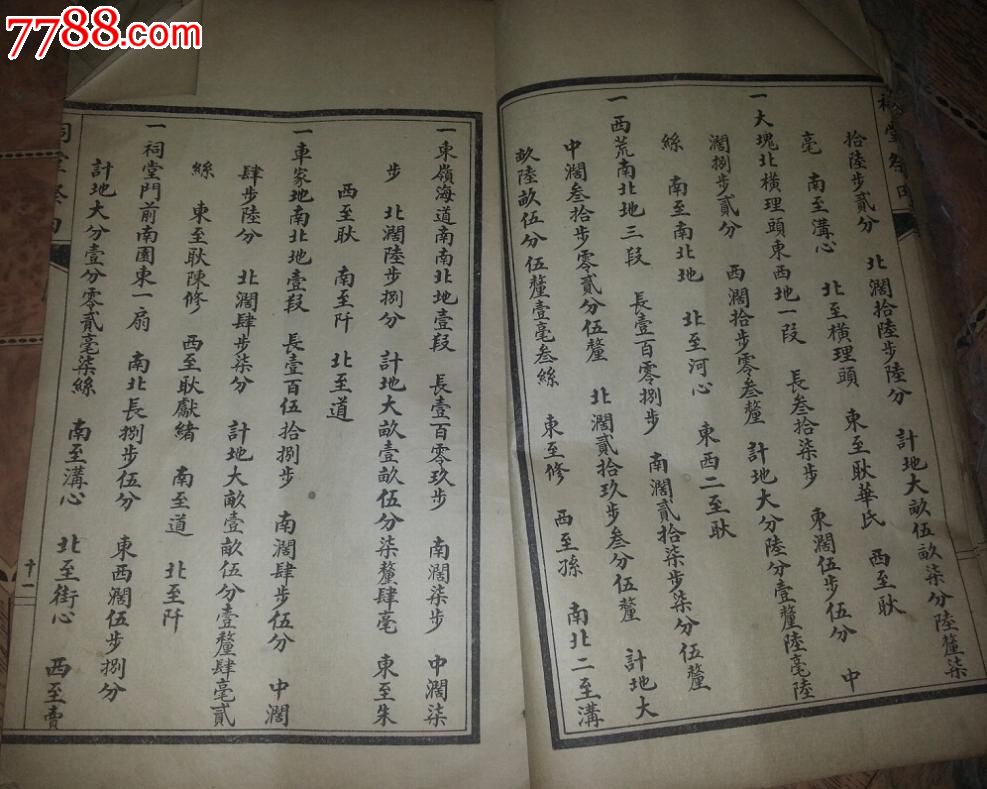 7788.com
祠堂祭田
拾陸步貳分 北濶拾陸步陸分 計地大畝伍畝柒分陸釐柒
毫 南至溝心 北至横理頭 東至耿華氏 西至耿
一大塊北横理頭東西地一段 長叁拾柒步 東濶伍步伍分 中
濶捌步貳分 西濶拾步零叁釐 計地大分陸分壹釐陸毫陸
絲 南至南北地 北至河心 東西二至耿
一西荒南北地三段 長壹百零捌步 南濶貳拾柒步柒分伍釐
中濶叁拾步零貳分伍釐 北濶貳拾玖步叁分伍釐 計地大
畝陸畝伍分伍釐壹毫叁絲 東至修 西至孫 南北二至溝
一東嶺海道南南北地壹叚 長壹百零玖步 南濶柒步 中濶柒
步 北濶陸步捌分 計地大畝壹畝伍分柒釐肆毫 東至朱
西至耿 南至阡 北至道
一車家地南北地壹叚 長壹百伍拾捌步 南濶肆步伍分 中濶
肆步陸分 北濶肆步柒分 計地大畝壹畝伍分壹釐肆毫貳
絲 東至耿陳修 西至耿獻緒 南至道 北至阡
一祠堂門前南園東一扇 南北長捌步伍分 東西濶伍步捌分
計地大分壹分零貳毫柒絲 南至溝心 北至街心 西至賣
祠堂祭田
十一